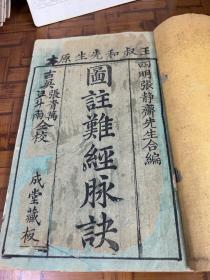 王叔和先生原本
四明張靜齋先生合編
圖註難經脉訣
古吳張青萬
汪斗南仝校
成堂藏板